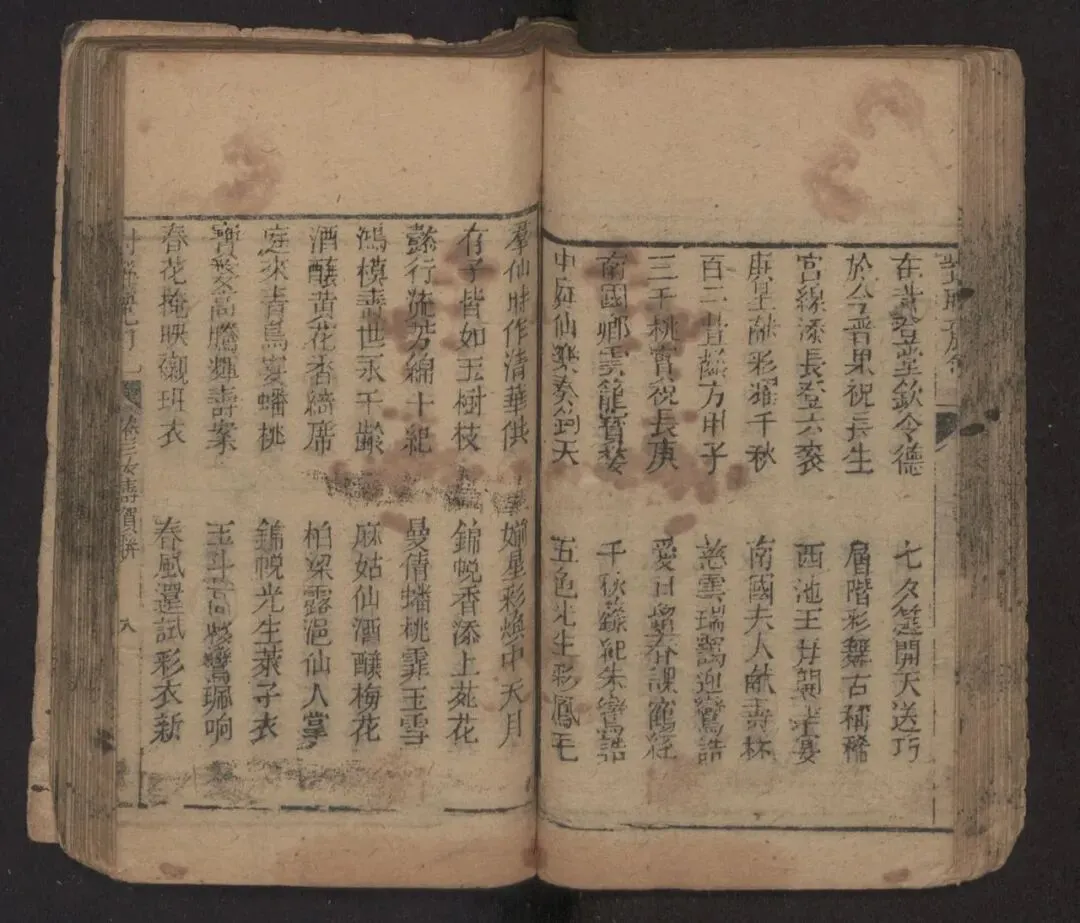 在昔登堂欽令德 七夕筵開天送巧
於今晋果祝長生 層階彩舞古稱稀
宮線添長登六袠 西池王母開筵宴
庚星献彩耀千秋 南國夫人献壽杯
百二方甲子 慈雲瑞靄迎鸞誥
三千桃實祝長庚 愛日春課鶴經
南國鄉雲籠寶婺 千秋朱鸞誥
中庭仙樂奏鈞天 五色光生彩鳳毛
羣仙時作清華供 婺星彩煥中天月
有子皆如玉樹枝 錦帨香添上苑花
懿行流芳綿十紀 曼倩蟠桃霏玉雪
鴻模壽世永千齡 麻姑仙酒釀梅花
酒釀黃花香綺席 柏梁露浥仙人掌
庭來青鳥宴蟠桃 錦帨光生萊子衣
寶婺高騰輝壽案 玉斗高懸鸞珮响
春花掩映襯班衣 春風還試彩衣新
卷三女壽賀聯 八